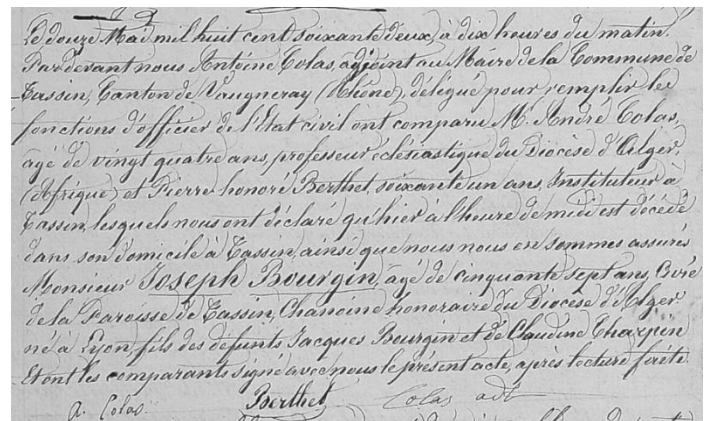 Le douze Mai mil huit cent soixante deux, à dix heures du matin.
Pardevant nous Antoine Colas, adjoint au Maire de la Commune de
Tassin, Canton de Vaugneray (Rhône), délégué pour remplir les
fonctions d'officier de l'Etat civil ont comparu M. André Colas,
âgé de vingt quatre ans, professeur éclésiastique du Diocèse d'Alger,
(Afrique) et Pierre honoré Berthet, soixante un ans, Instituteur à
Tassin, lesquels nous ont déclaré qu'hier à l'heure de midi est décédé
dans son domicile à Tassin, ainsi que nous nous en sommes assurés
Monsieur Joseph Bourgin, âgé de cinquante sept ans, Curé
de la Paroisse de Tassin, Chanoine honoraire du Diocèse d'Alger
né à Lyon, fils des défunts Jacques Bourgin et de Claudine Charpin
Et ont les comparants signé avec nous le présent acte, après lecture faite.
A. Colas. Berthet Colas adt